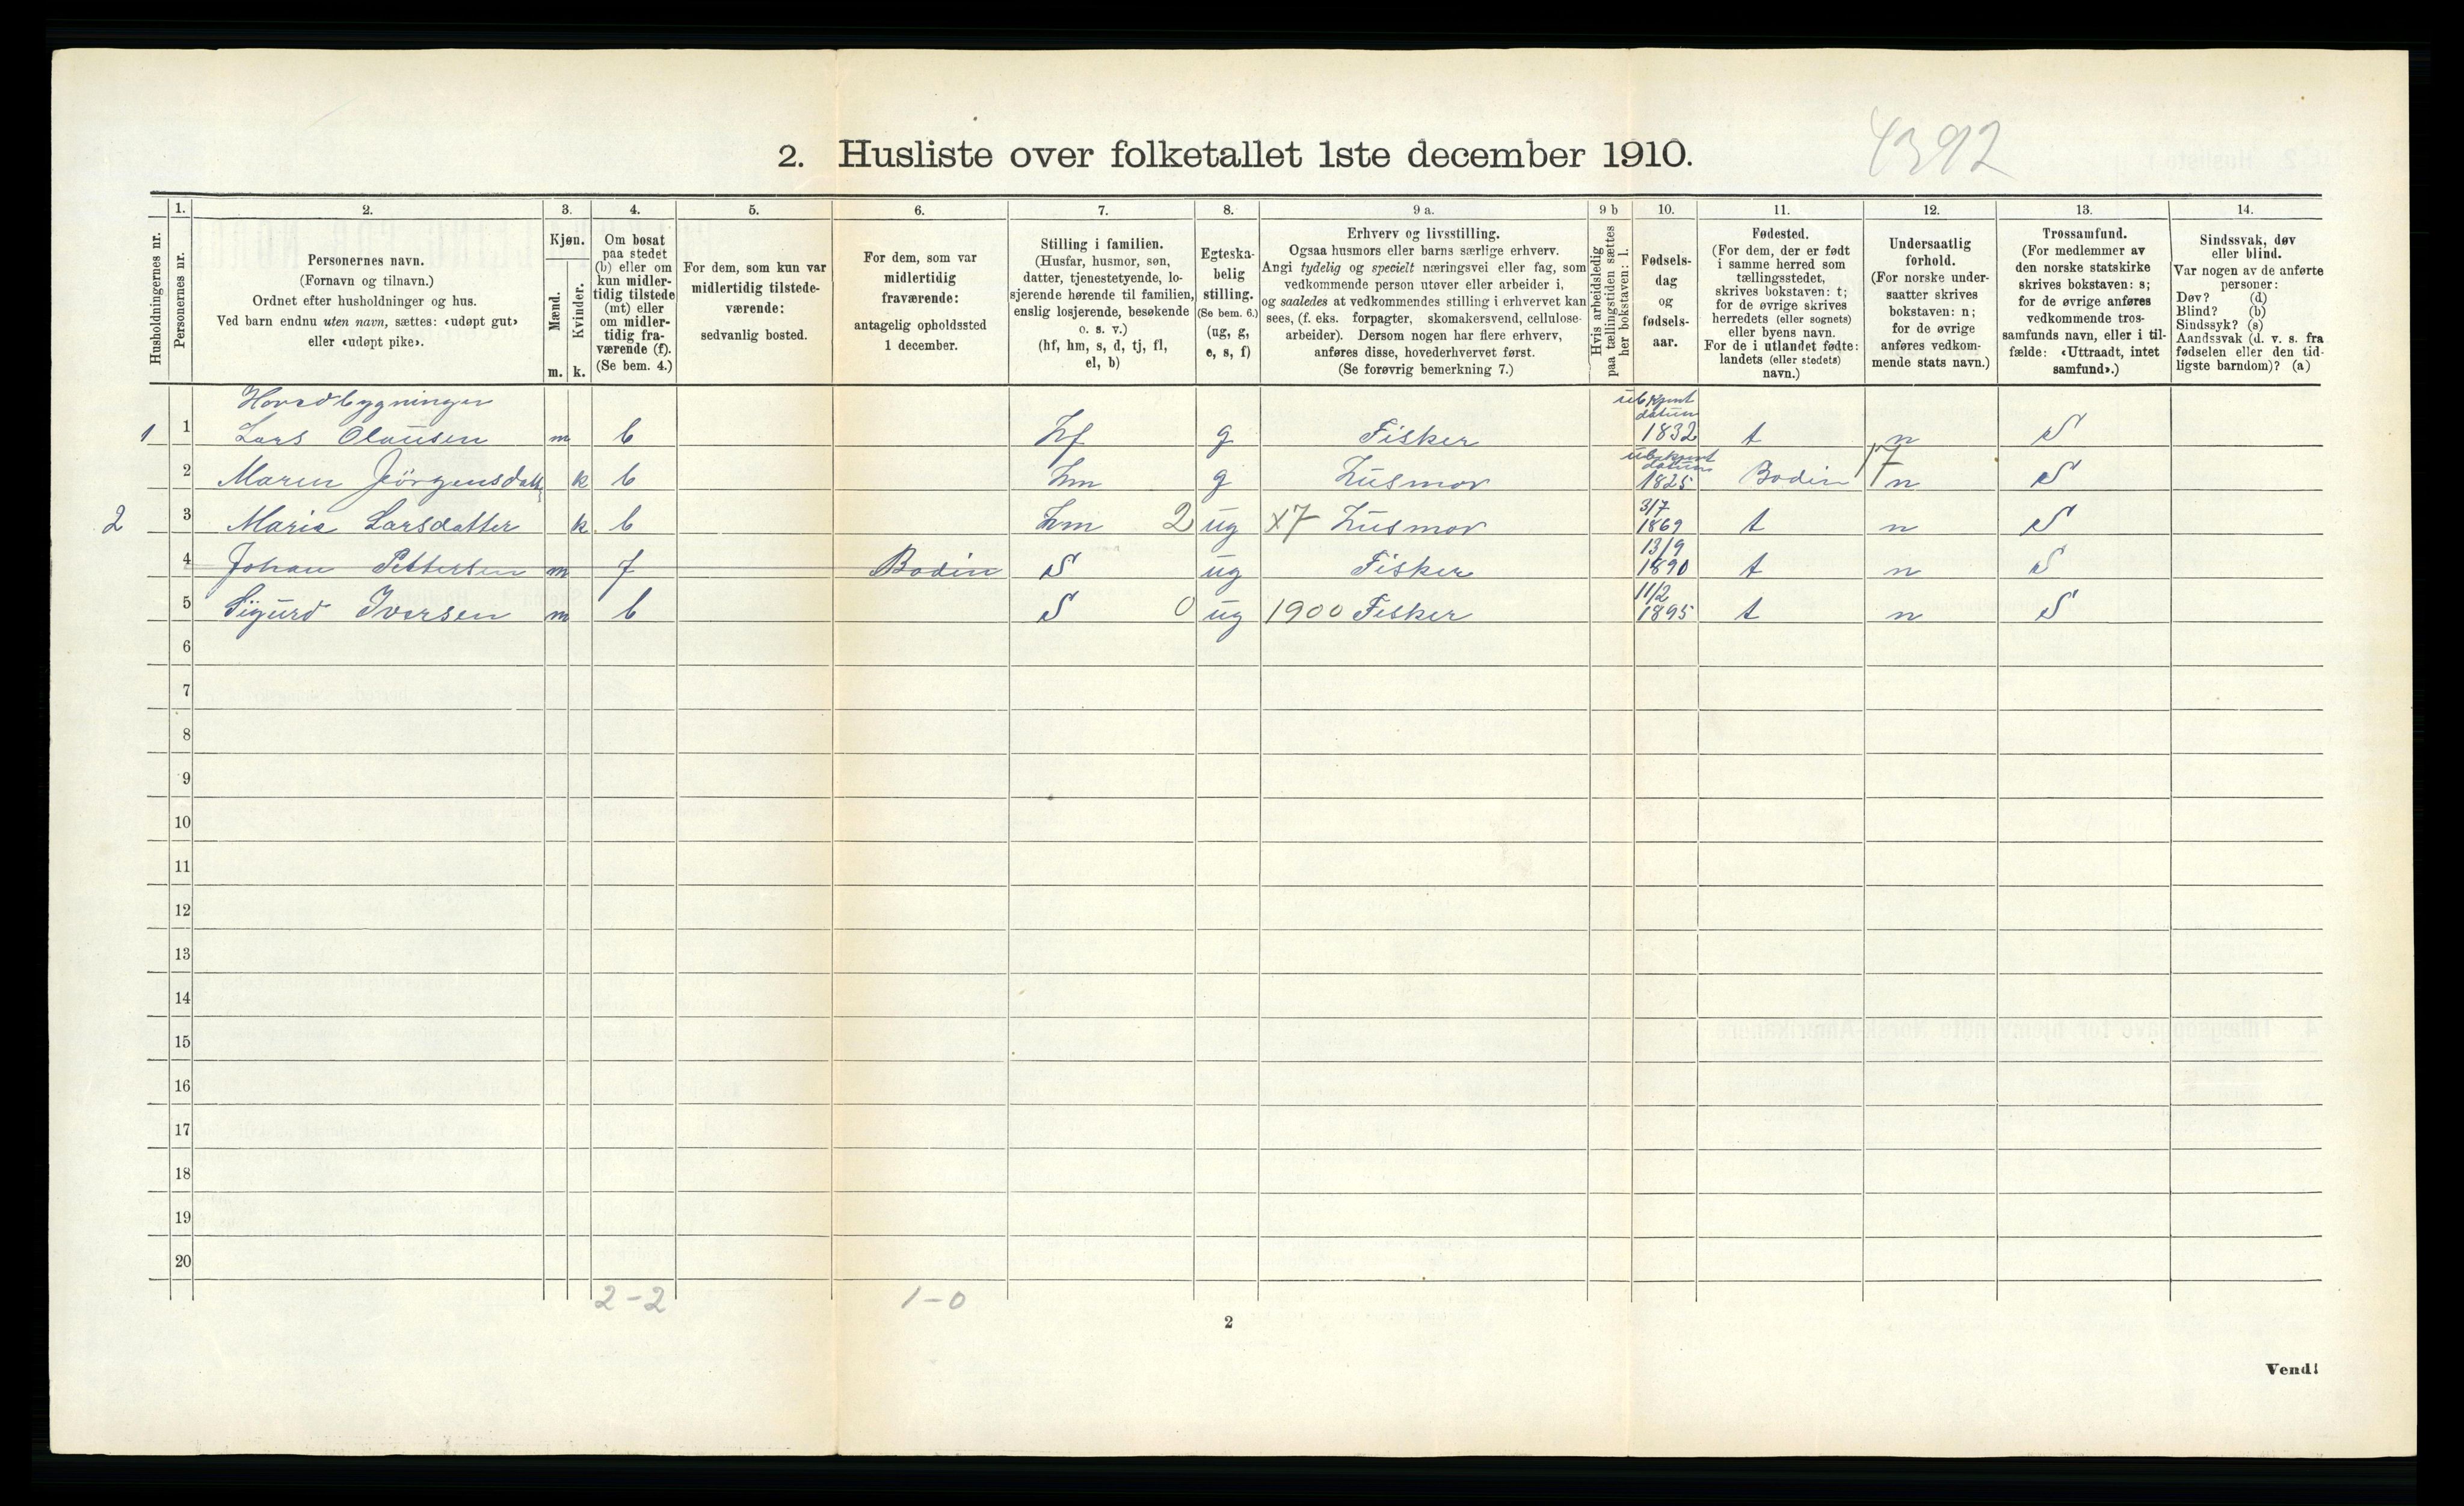 2. Husliste over folketallet 1ste december 1910.
4392
Husholdningernes nr.
1.
Personernes nr.
2.
Personernes navn.
(Fornavn og tilnavn.)
Ordnet efter husholdninger og hus.
Ved barn endnu uten navn, sættes: «udøpt gut»
eller «udøpt pike».
3.
Kjøn.
Mænd.
Kvinder.
m. k.
4.
Om bosat
paa stedet
(b) eller om
kun midler-
tidig tilstede
(mt) eller
om midler-
tidig fra-
værende (f).
(Se bem. 4.)
5.
For dem, som kun var
midlertidig tilstede-
værende:
sedvanlig bosted.
6.
For dem, som var
midlertidig
fraværende:
antagelig opholdssted
1 december.
7.
Stilling i familien.
(Husfar, husmor, søn,
datter, tjenestetyende, lo-
sjerende hørende til familien,
enslig losjerende, besøkende
o. s. v.)
(hf, hm, s, d, tj, fl,
el, b)
8.
Egteska-
belig
stilling.
(Se bem. 6.)
(ug, g,
e, s, f)
9 a.
Erhverv og livsstilling.
Ogsaa husmors eller barns særlige erhverv.
Angi tydelig og specielt næringsvei eller fag, som
vedkommende person utøver eller arbeider i,
og saaledes at vedkommendes stilling i erhvervet kan
sees, (f. eks. forpagter, skomakersvend, cellulose-
arbeider). Dersom nogen har flere erhverv,
anføres disse, hovederhvervet først.
(Se forøvrig bemerkning 7.)
9 b
Hvis arbeidsledig
paa tællingstiden sættes
her bokstaven: l.
10.
Fødsels-
dag
og
fødsels-
aar.
11.
Fødested.
(For dem, der er født
i samme herred som
tællingsstedet,
skrives bokstaven: t;
for de øvrige skrives
herredets (eller sognets)
eller byens navn.
For de i utlandet fødte:
landets (eller stedets)
navn.)
12.
Undersaatlig
forhold.
(For norske under-
saatter skrives
bokstaven: n;
for de øvrige
anføres vedkom-
mende stats navn.)
13.
Trossamfund.
(For medlemmer av
den norske statskirke
skrives bokstaven: s;
for de øvrige anføres
vedkommende tros-
samfunds navn, eller i til-
fælde: «Uttraadt, intet
samfund».)
14.
Sindssvak, døv
eller blind.
Var nogen av de anførte
personer:
Døv? (d)
Blind? (b)
Sindssyk? (s)
Aandssvak (d. v. s. fra
fødselen eller den tid-
ligste barndom)? (a)
Hovedbygningen
ubkjent
datum
1 1 Lars Olausen m b hf g Fisker 1832 t n S
ubekjent
datum
2 Maren Jörgensdatt k b hm g Husmor 1825 Bodin 17 n S
3/7
2 3 Maria Larsdatter k b hm 2 ug x7 Husmor 1869 t n S
13/9
4 Johan Pettersen m f Bodin S ug Fisker 1890 t n S
11/2
5 Sigurd Iversen m b S 0 ug 1900 Fisker 1895 t n S
6
7
8
9
10
11
12
13
14
15
16
17
18
19
20
2-2 1-0
2
Vend!